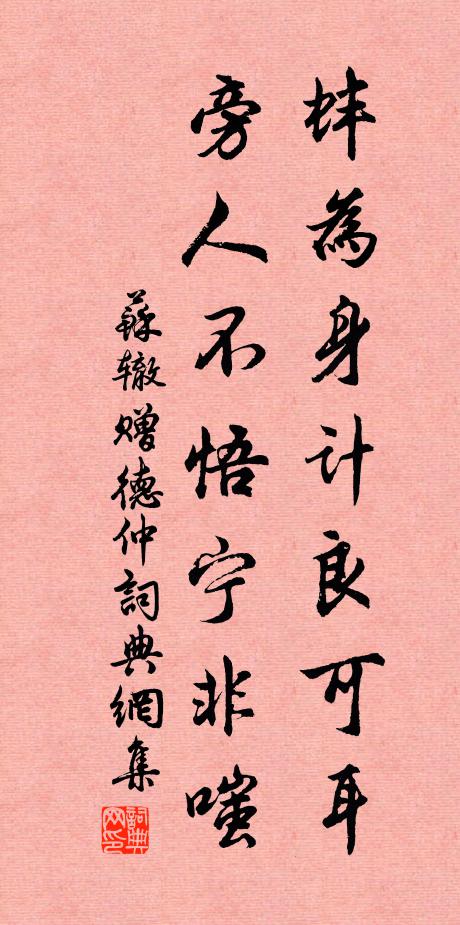 蚌為身计良可耳
旁人不悟宁非嗤
蘇辙赠德仲詞典網集
詞典网印